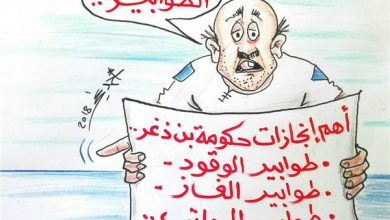 الطوابير..
2018
أهم إنجازات حكومة بن دغر..
• طوابير الوقود -
• طوابير الغاز -
• طوابير